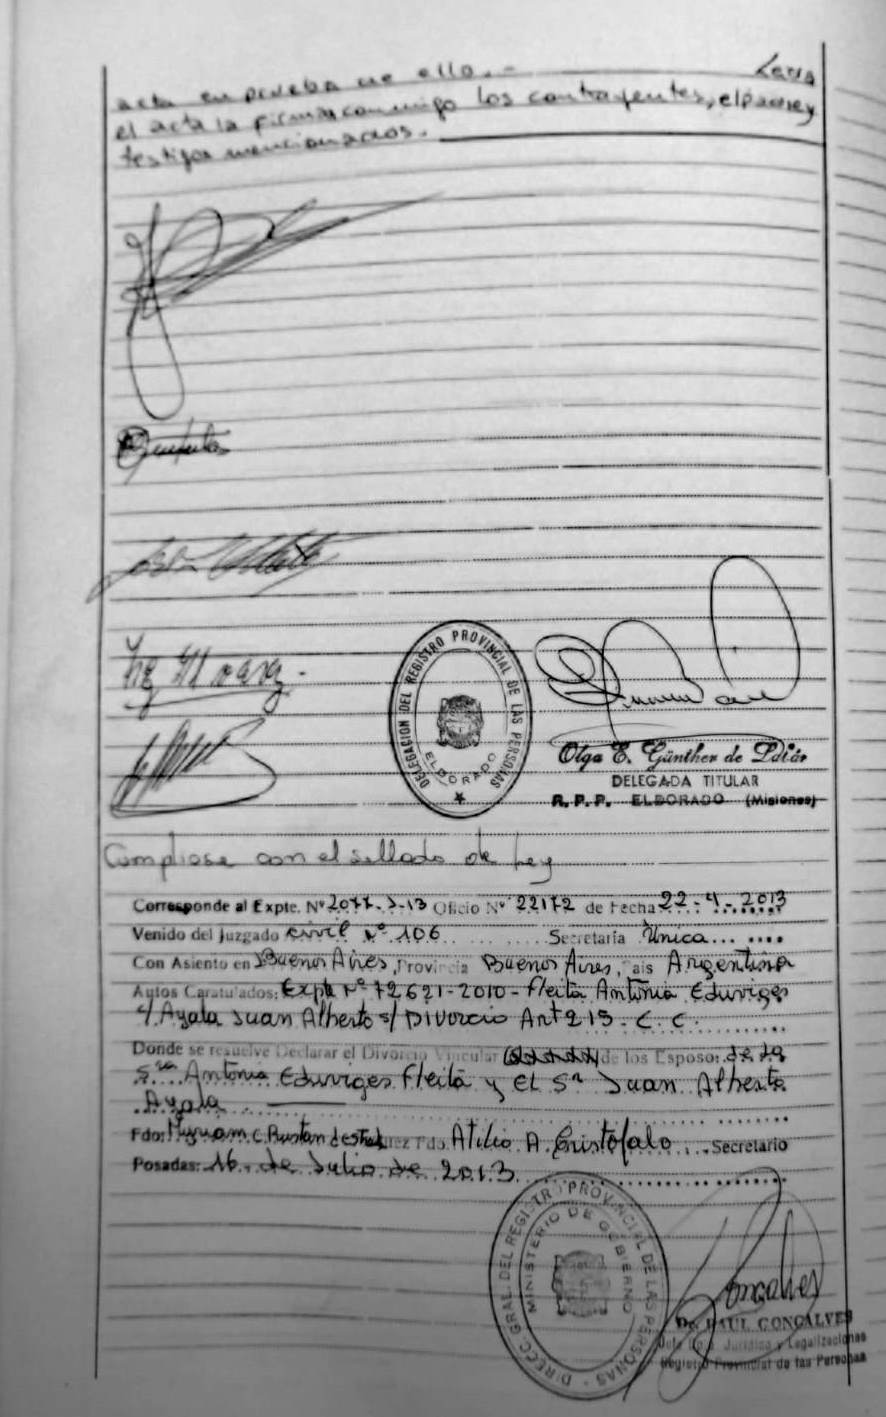 acta en prueba de ello.- Leida
el acta la firman conmigo los contrayentes, el padre y
testigos mencionados.
DELEGACION DEL REGISTRO PROVINCIAL DE LAS PERSONAS
ELDORADO
Olga E. Günther de
DELEGADA TITULAR
R. P. P. ELDORADO (Misiones)
Cumplose con el sellado de Ley
Corresponde al Expte. Nº 2077-J-13 Oficio Nº 22172 de Fecha 22-4-2013
Venido del Juzgado civil Nº 106 Secretaría Unica
Con Asiento en Buenos Aires, Provincia Buenos Aires, Pais Argentina
Autos Caratulados: Expte Nº 72621-2010 - Fleita Antonia Eduviges
c/ Ayala Juan Alberto s/ Divorcio Art 215. C.C.
Donde se resuelve Declarar el Divorcio Vincular de los Esposos: de la
Sra Antonia Eduviges Fleita y el Sr Juan Alberto
Ayala
Fdo: Myriam Juez Fdo. Atilio A. Cristófalo Secretario
Posadas: 16 de Julio de 2013
DIRECC. GRAL. DEL REGISTRO PROVINCIAL DE LAS PERSONAS
MINISTERIO DE GOBIERNO
Goncalves
Dr. RAUL GONCALVES
Jefe Dpto. Jurídica y Legalizaciones
Registro Provincial de las Personas